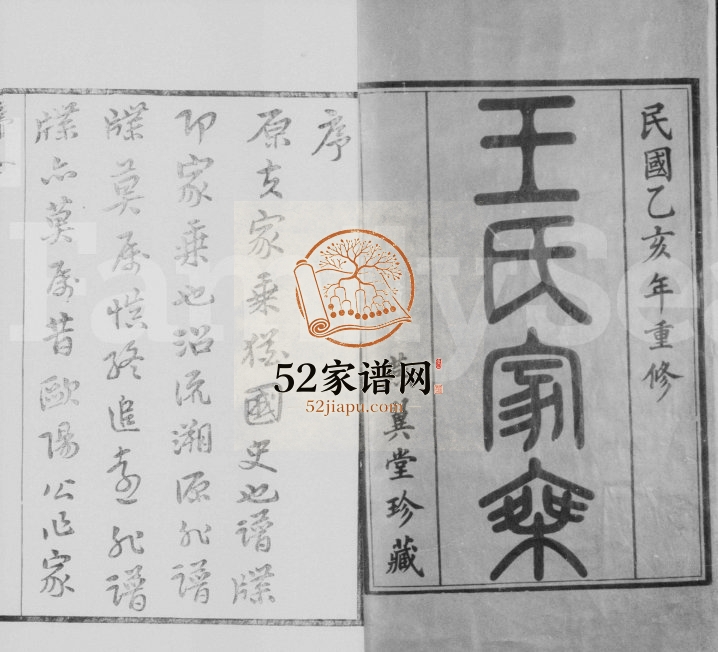 民國乙亥年重修
王氏家乘
巽堂珍藏
序
原夫家乘猶國史也譜牒
即家乘也沿流溯源非譜
牒莫屬慎終追遠非譜
牒亦莫屬昔歐陽公作家
52家谱网
52jiapu.com